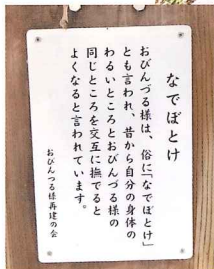 なでぼとけ
おびんづる様は、俗に「なでぼとけ」
とも言われ、昔から自分の身体の
わるいところとおびんづる様の
同じところを交互に撫でると
よくなると言われています。
おびんづる様再建の会